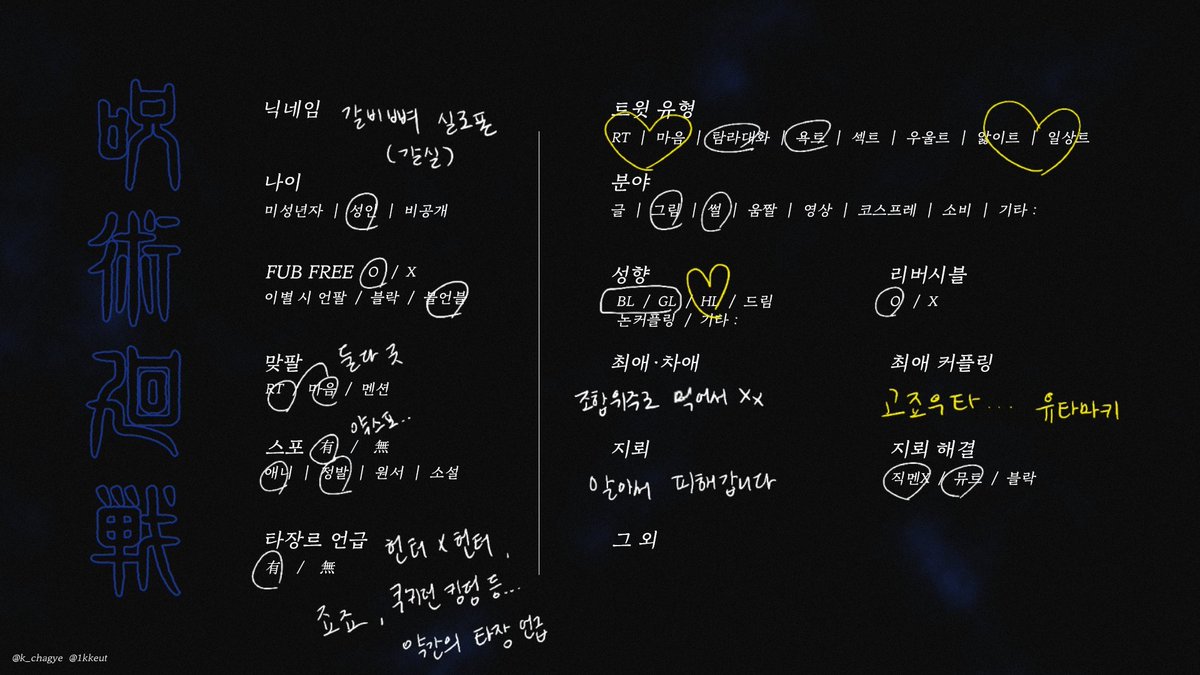 呪術廻戦
닉네임 갈비뼈 실로폰
(갈실)
나이
미성년자 | 성인 | 비공개
FUB FREE O / X
이별 시 언팔 / 블락 / 블언블
맞팔 둘다 굿
RT / 마음 / 멘션
약스포..
스포 有 / 無
애니 | 정발 | 원서 | 소설
타장르 언급 헌터 X 헌터,
有 / 無
죠죠, 쿠키런 킹덤 등...
약간의 타장 언급
트윗 유형
RT | 마음 | 탐라대화 | 욕토 | 섹트 | 우울트 | 앓이트 | 일상트
분야
글 | 그림 | 썰 | 움짤 | 영상 | 코스프레 | 소비 | 기타 :
성향
BL / GL / HL / 드림
논커플링 / 기타 :
리버시블
O / X
최애·차애
조합위주로 먹어서 xx
최애 커플링
고죠우타... 유타마키
지뢰
알아서 피해갑니다
지뢰 해결
직멘X / 뮤토 / 블락
그 외
@k_chagye @1kkeut